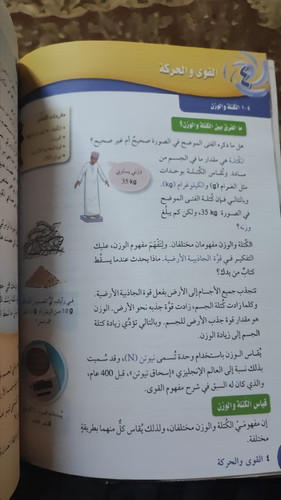 القوى والحركة
٤-١ الكتلة والوزن
ما الفرق بين الكتلة والوزن؟
هل ما ذكره الفتى الموضح في الصورة صحيحٌ أم غير صحيح؟
الكتلة هي مقدار ما في الجسم من
مادة. وتُقاس الكتلة بوحدات
مثل الغرام (g) والكيلوغرام (kg).
وبالتالي فإن كتلة الفتى الموضح
في الصورة 35 kg، ولكن كم يبلغ
وزنه؟
وزني يساوي
35 kg
الكتلة والوزن مفهومان مختلفان. ولِتَفْهَمَ مفهوم الوزن، عليك
التفكير في قوّة الجاذبية الأرضية. ماذا يحدث عندما يسقُط
كتابٌ من يدك؟
تنجذب جميع الأجسام إلى الأرض بفعل قوة الجاذبية الأرضية.
وكلما زادت كُتلة الجسم، زادت قوّة جذبه نحو الأرض. الوزن
هو مقدار قوة جذب الأرض للجسم. وبالتالي تؤدّي زيادة كتلة
الجسم إلى زيادة الوزن.
يُقاس الوزن باستخدام وحدة تُسمى نيوتن (N)، وقد سُميت
بذلك نسبةً إلى العالم الإنجليزي «إسحاق نيوتن»، قبل 400 عام،
والذي كان له السبق في شرح مفهوم القوى.
قياس الكتلة والوزن
إن مفهومَيْ الكُتلة والوزن مختلفان، ولذلك يُقاس كلٌّ منهما بطريقةٍ
مختلفة.
٤ القوى والحركة